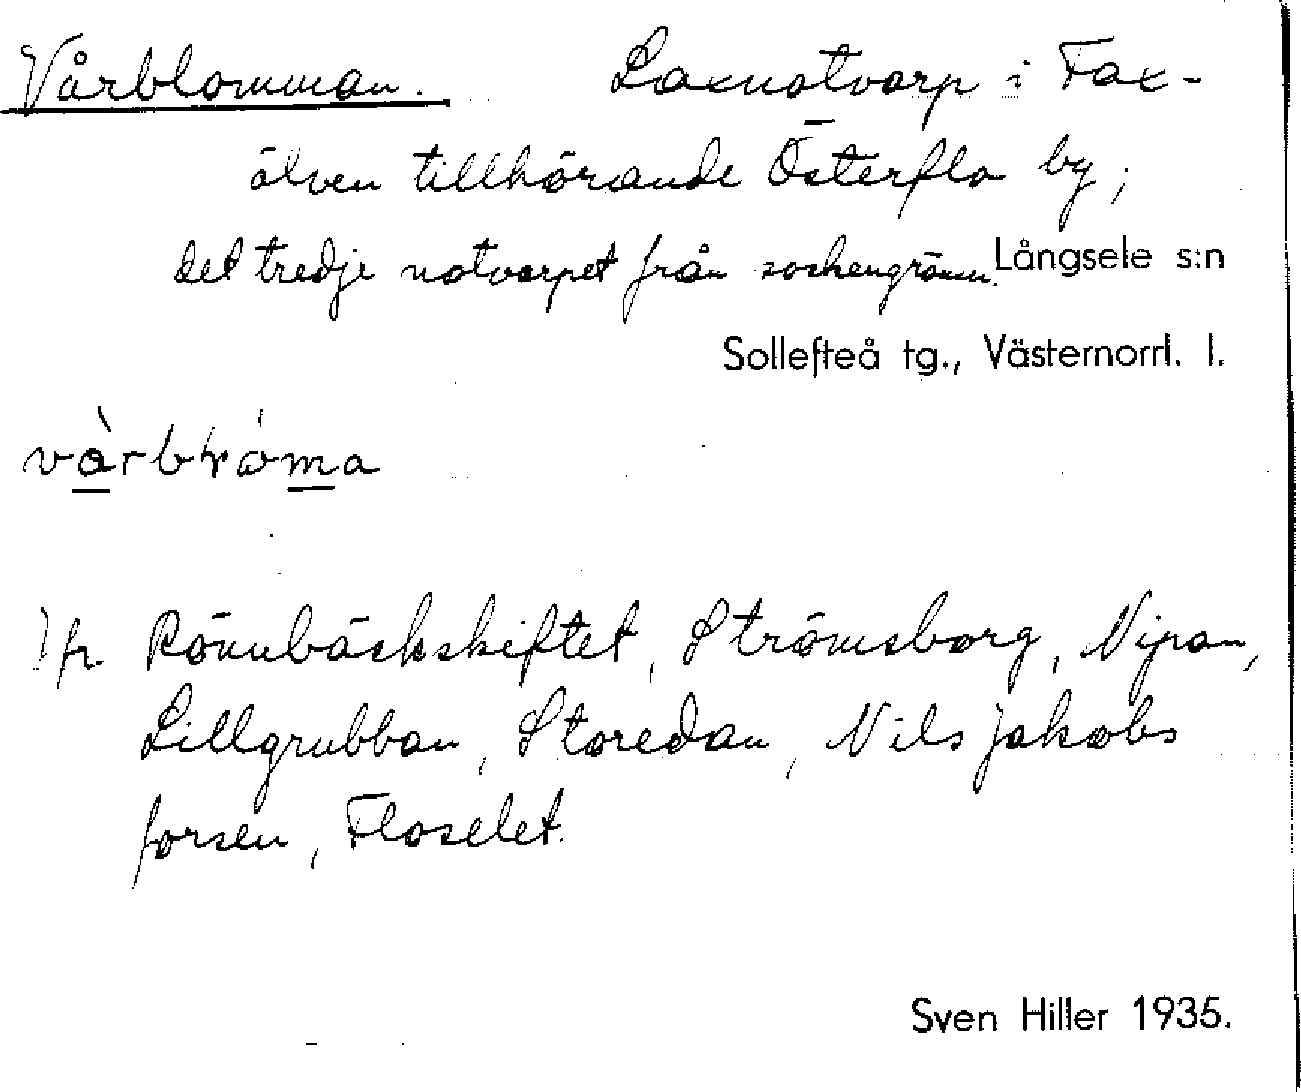 Vårblomman. Laxnotvarp i Fax-
älven tillhörande Österflo by;
det tredje notvarpet från sockengränsen. Långsele s:n
Sollefteå tg., Västernorrl. l.
Jfr Rönnbäckskiftet, Strömsborg, Nipan,
Lillgrubban, Storedan, Nils jakobs
forsen, Floselet.
Sven Hiller 1935.